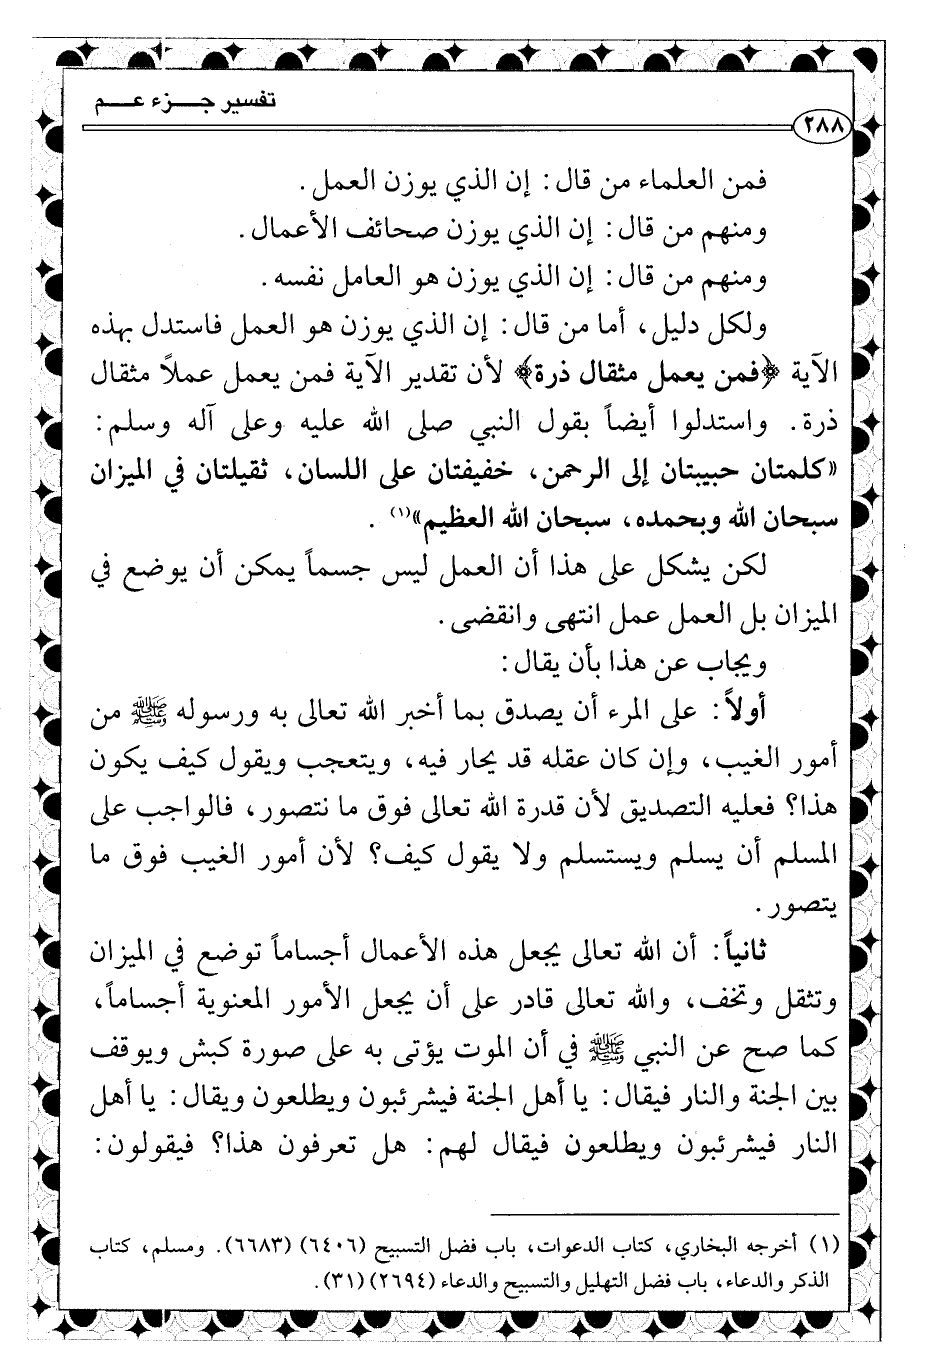 تفسير جزء عم
٢٨٨
فمن العلماء من قال: إن الذي يوزن العمل.
ومنهم من قال: إن الذي يوزن صحائف الأعمال.
ومنهم من قال: إن الذي يوزن هو العامل نفسه.
ولكل دليل، أما من قال: إن الذي يوزن هو العمل فاستدل بهذه
الآية ﴿فمن يعمل مثقال ذرة﴾ لأن تقدير الآية فمن يعمل عملاً مثقال
ذرة. واستدلوا أيضاً بقول النبي صلى الله عليه وعلى آله وسلم:
«كلمتان حبيبتان إلى الرحمن، خفيفتان على اللسان، ثقيلتان في الميزان
سبحان الله وبحمده، سبحان الله العظيم»(١).
لكن يشكل على هذا أن العمل ليس جسماً يمكن أن يوضع في
الميزان بل العمل عمل انتهى وانقضى.
ويجاب عن هذا بأن يقال:
أولاً: على المرء أن يصدق بما أخبر الله تعالى به ورسوله ﷺ من
أمور الغيب، وإن كان عقله قد يحار فيه، ويتعجب ويقول كيف يكون
هذا؟ فعليه التصديق لأن قدرة الله تعالى فوق ما نتصور، فالواجب على
المسلم أن يسلم ويستسلم ولا يقول كيف؟ لأن أمور الغيب فوق ما
يتصور.
ثانياً: أن الله تعالى يجعل هذه الأعمال أجساماً توضع في الميزان
وتثقل وتخف، والله تعالى قادر على أن يجعل الأمور المعنوية أجساماً،
كما صح عن النبي ﷺ في أن الموت يؤتى به على صورة كبش ويوقف
بين الجنة والنار فيقال: يا أهل الجنة فيشرئبون ويطلعون ويقال: يا أهل
النار فيشرئبون ويطلعون فيقال لهم: هل تعرفون هذا؟ فيقولون:
(١) أخرجه البخاري، كتاب الدعوات، باب فضل التسبيح (٦٤٠٦) (٦٦٨٣). ومسلم، كتاب
الذكر والدعاء، باب فضل التهليل والتسبيح والدعاء (٢٦٩٤) (٣١).